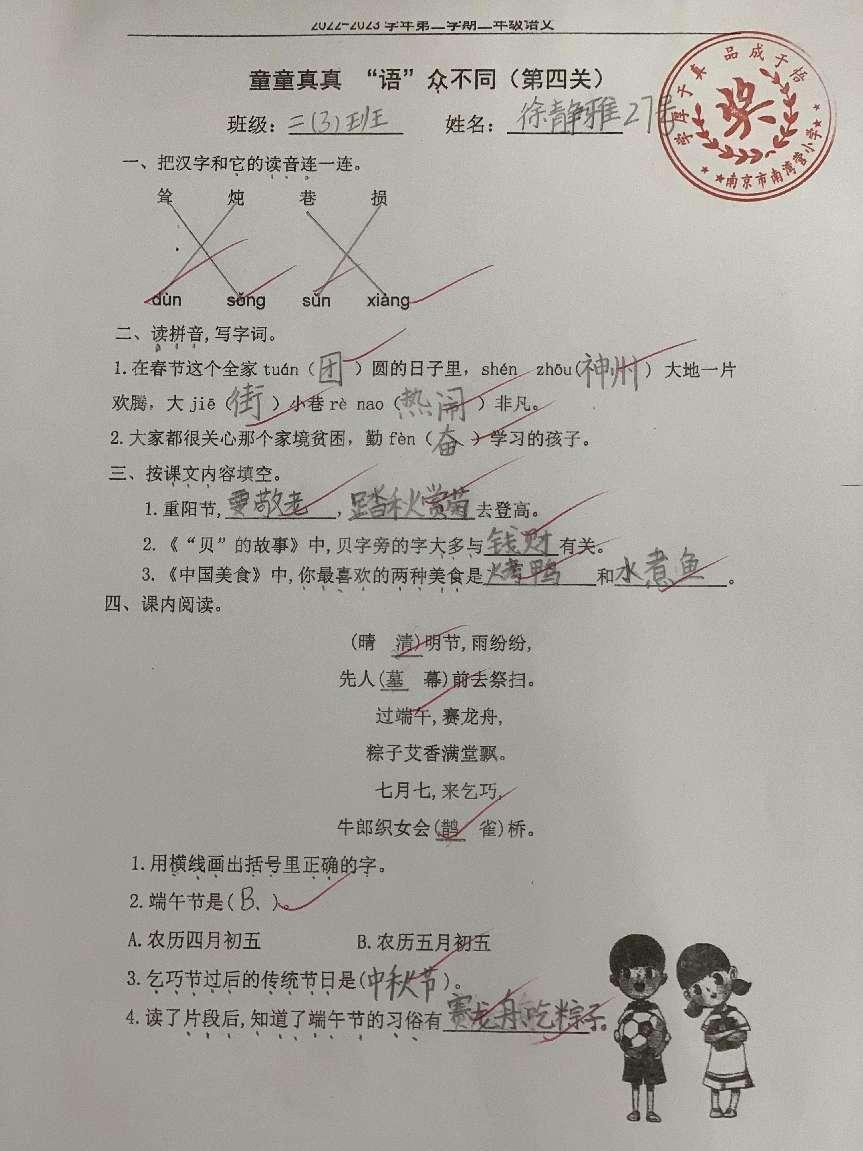 2022-2023 学年第二学期二年级语文
童童真真 “语”众不同（第四关）
班级：二(3)班 姓名：徐静雅27号
学厚于真 品成于悟
奖
南京市南湾营小学
一、把汉字和它的读音连一连。
耸 炖 巷 损
dùn sǒng sǔn xiàng
二、读拼音,写字词。
1.在春节这个全家 tuán（团）圆的日子里, shén zhōu(神州) 大地一片
欢腾，大 jiē（街）小巷 rè nao（热闹）非凡。
2.大家都很关心那个家境贫困，勤 fèn（奋）学习的孩子。
三、按课文内容填空。
1.重阳节,要敬老,踏秋赏菊去登高。
2.《“贝”的故事》中,贝字旁的字大多与钱财有关。
3.《中国美食》中,你最喜欢的两种美食是烤鸭和水煮鱼。
四、课内阅读。
(晴 清)明节,雨纷纷,
先人(墓 幕)前去祭扫。
过端午,赛龙舟,
粽子艾香满堂飘。
七月七,来乞巧,
牛郎织女会(鹊 雀)桥。
1.用横线画出括号里正确的字。
2.端午节是(B.)。
A.农历四月初五 B.农历五月初五
3.乞巧节过后的传统节日是(中秋节)。
4.读了片段后,知道了端午节的习俗有赛龙舟,吃粽子。